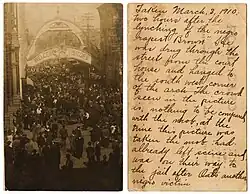 Taken March, 3, 1910,
two hours after the
lynching of the negro
rapest Brown. He
was drug through the
street from the court
house and hanged to
the south west corner
of the arch. The crowd
seen in the picture
is nothing to be compared
with the mob at the
time the picture was
taken the mob had
already left
and was on their way to
the jail after
negro victim.